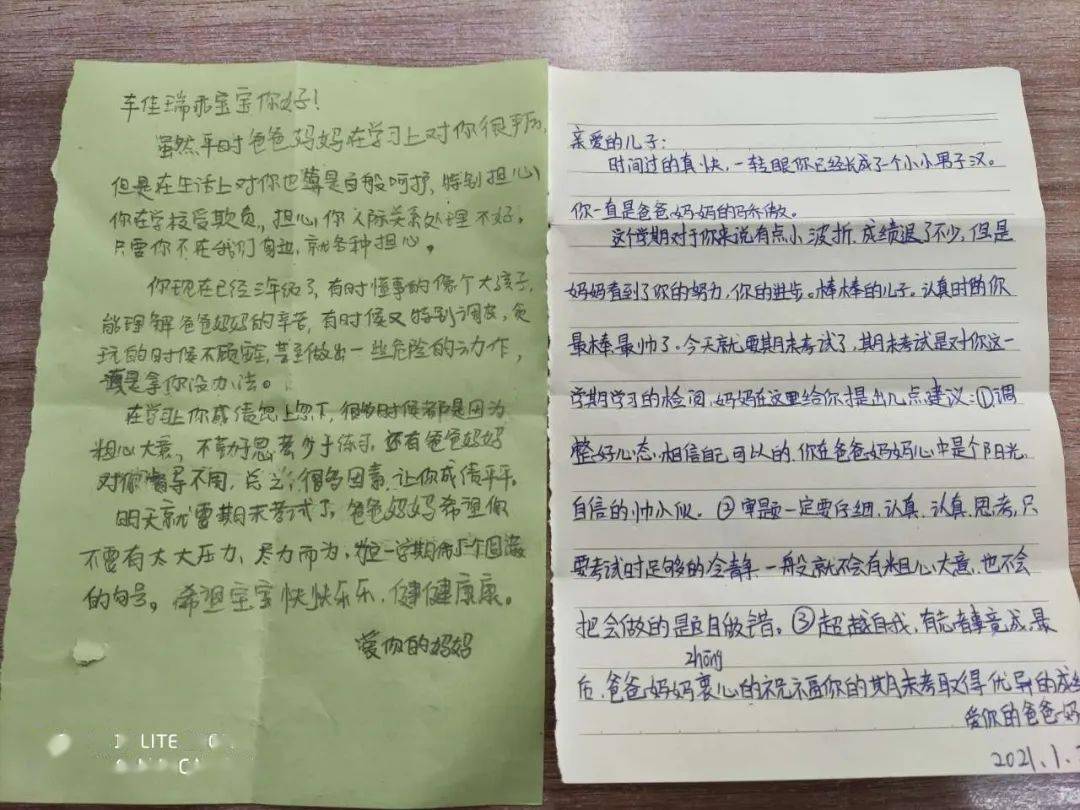 车佳瑞乖宝宝你好!
虽然平时爸爸妈妈在学习上对你很严厉,
但是在生活上对你也算是百般呵护,特别担心
你在学校受欺负,担心你人际关系处理不好。
只要你不在我们身边,就各种担心。
你现在已经三年级了,有时懂事的像个大孩子,
能理解爸爸妈妈的辛苦,有时候又特别调皮,贪
玩的时候不顾,甚至做出一些危险的动作,
真是拿你没办法。
在学习上你成绩忽上忽下,很多时候都是因为
粗心大意,不勤好思考少于练习,还有爸爸妈妈
对你督导不周,总之,很多因素,让你成绩平平。
明天就要期末考试了,爸爸妈妈希望你
不要有太大压力,尽力而为,为这一学期画上个圆满
的句号。希望宝宝快快乐乐、健健康康。
爱你的妈妈
LITE
亲爱的儿子:
时间过的真快,一转眼你已经长成了一个小小男子汉。
你一直是爸爸妈妈的骄傲。
这个学期对于你来说有点小波折,成绩退了不少,但是
妈妈看到了你的努力,你的进步。棒棒的儿子。认真时的你
最棒、最帅了。今天就要期末考试了,期末考试是对你这一
学期学习的检测,妈妈在这里给你提出几点建议:①调
整好心态,相信自己可以的,你在爸爸妈妈心中是个阳光、
自信的帅小伙。②审题一定要仔细、认真、认真、思考,只
要考试时足够的冷静,一般就不会有粗心大意,也不会
把会做的题目做错。③超越自我,有志者事竟成,最
zhōng
后,爸爸妈妈衷心的祝福你的期末考取得优异的成绩
爱你的爸爸妈
2021.1.